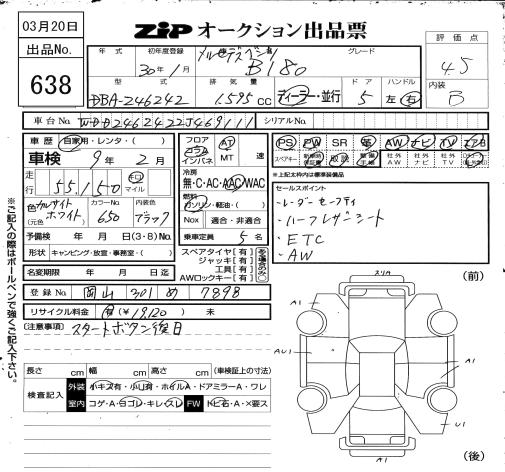 03月20日
ZiP オークション出品票
出品No.
638
評価点
4.5
内装
B
年式
初年度登録
30年1月
メルセデスベンツ
B180
グレード
型式
DBA-246242
排気量
1.595cc
ディーラー・並行
ドア
5
ハンドル
左・右
車台No.
WDD2462422J469111
シリアルNo.
車歴
自家用・レンタ・( )
車検
9年2月
フロア
コラム
インパネ
AT
MT
速
PS PW SR 革 AW ナビ TV エアB
スペアキー
取説
社外AW
社外ナビ
社外TV
走行
55,150
km
マイル
冷房
無・C・AC・AAC・WAC
燃料
ガソリン・軽油・( )
※上記太枠内は標準装備品
色
(元色)
カルサイトホワイト
カラーNo.
650
内装色
ブラック
Nox
適合・非適合
乗車定員
5名
予備検
年 月 日(3・8)No.
形状
キャンピング・放宣・事務室・( )
名変期限
年 月 日迄
スペアタイヤ[有]
ジャッキ[有]
工具[有]
AWロックキー[有]
セールスポイント
・レーダーセーフティ
・ハーフレザーシート
・ETC
・AW
登録No.
岡山 301 め 7898
リサイクル料金
有(¥19,120) 未
(注意事項)
スタートボタン後日
※ご記入の際はボールペンで強くご記入下さい。
長さ cm 幅 cm 高さ cm (車検証上の寸法)
検査記入
外装
小キズ有・小凹有・ホイルA・ドアミラーA・ワレ
室内
コゲ・A・ヨゴレ・キレ・スレ
FW
トビ石・A・×要ス
(前)
スリA
A1
A1
AU1
A1
U1
A1
(後)